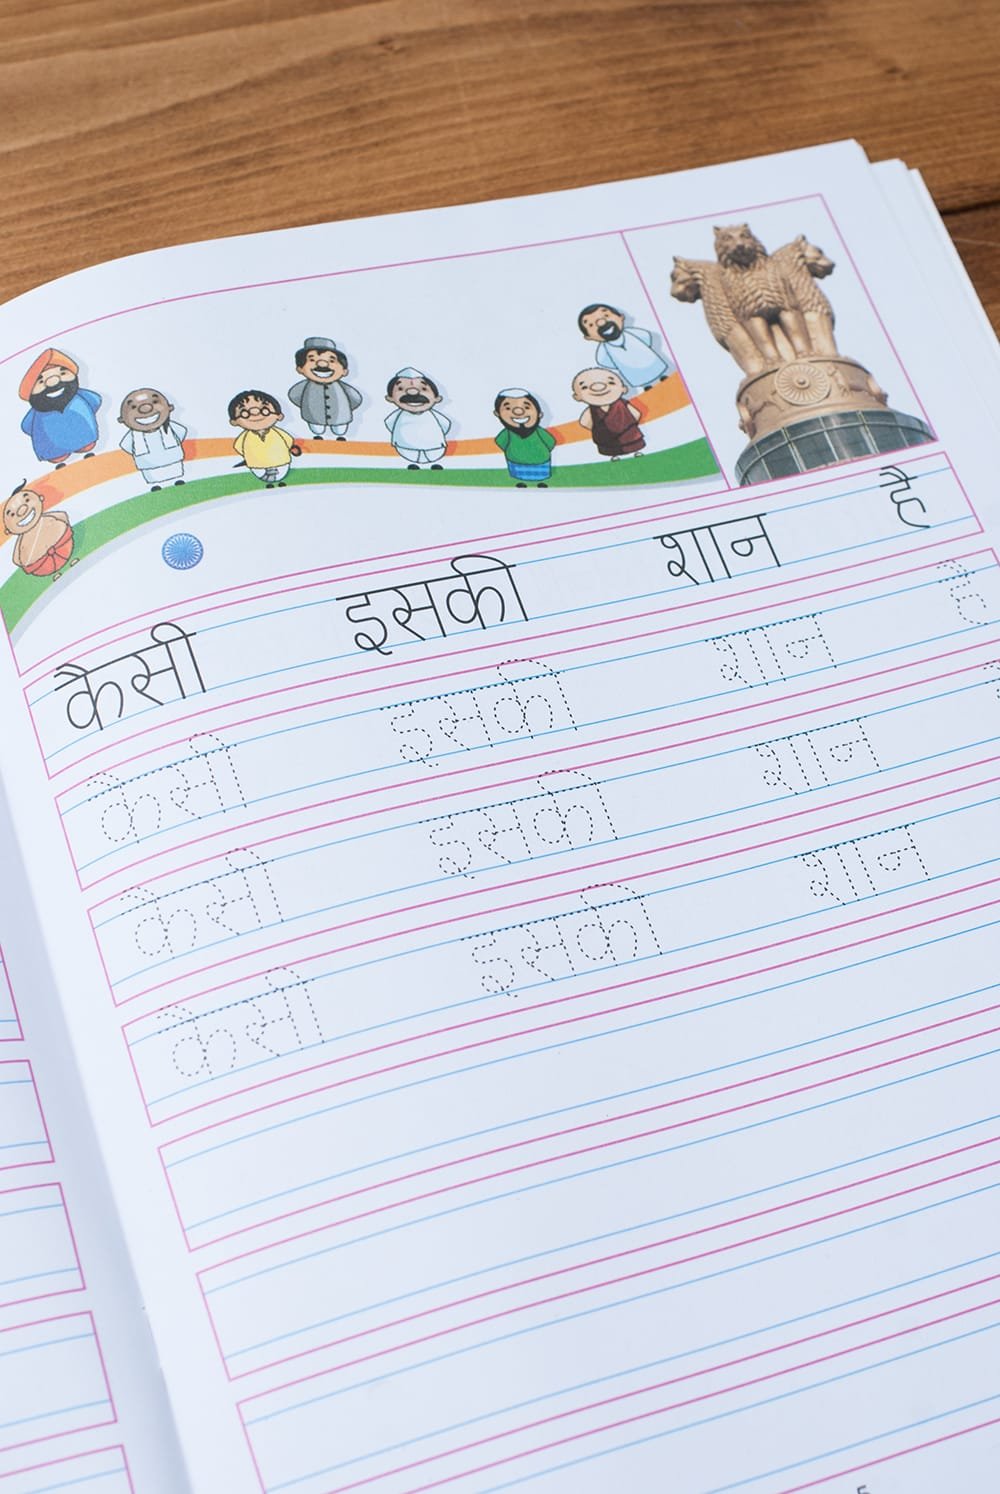 कैसी इसकी शान है
कैसी इसकी शान है
कैसी इसकी शान
कैसी इसकी शान
5